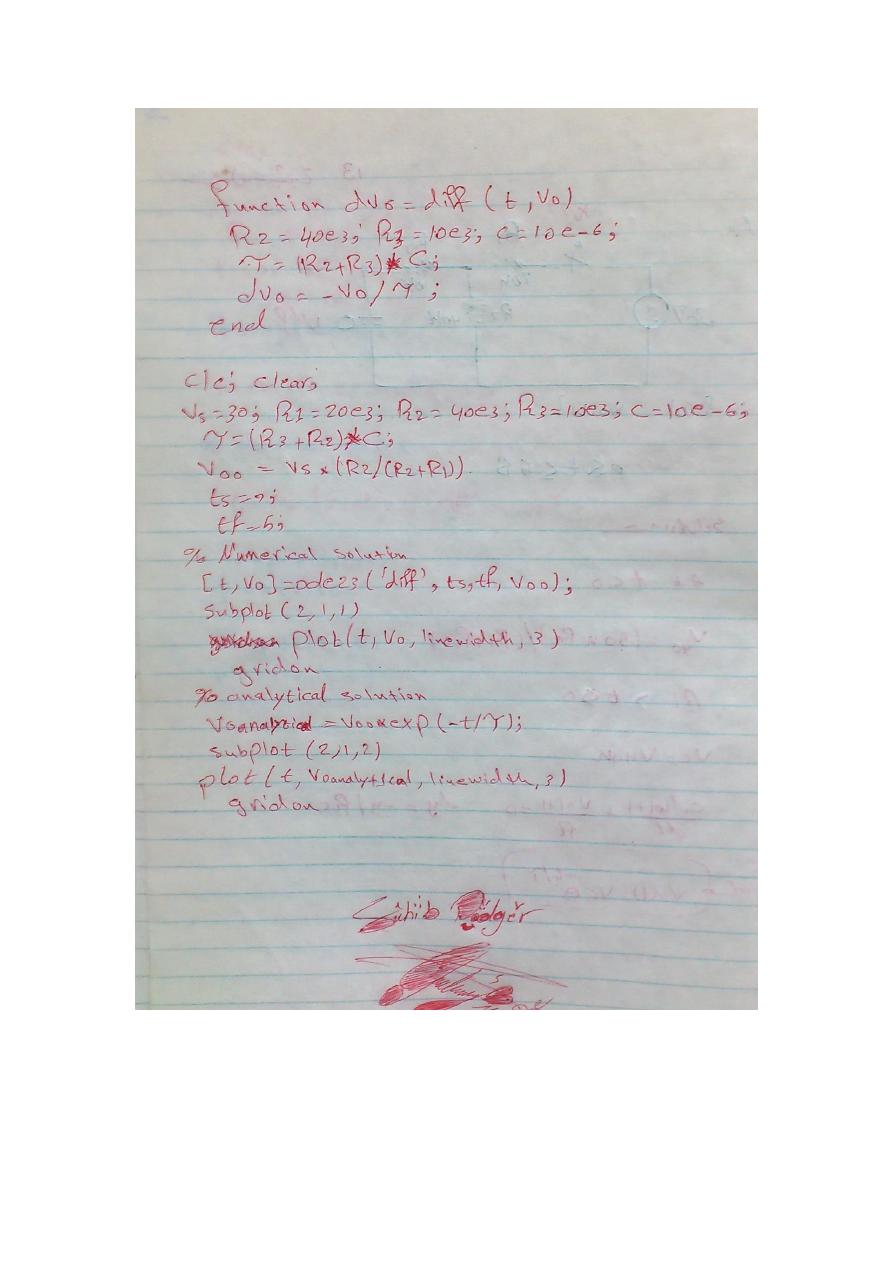 function dvo = diff (t, Vo)
R2 = 40e3; R3 = 10e3; C = 10e-6;
τ = (R2+R3)*C;
dVo = -Vo/τ;
end
clc; clear;
Vs=30; R1=20e3; R2=40e3; R3=10e3; C=10e-6;
τ=(R3+R2)*C;
Voo = Vs*(R2/(R2+R1))
ts=0;
tf=5;
% Numerical solution
[t,Vo]=ode23('diff', ts,tf, Voo);
subplot(2,1,1)
plot(t, Vo, linewidth, 3)
gridon
% analytical solution
Voanalytical = Voo*exp(-t/τ);
subplot (2,1,2)
plot(t, Voanalytical, linewidth, 3)
gridon